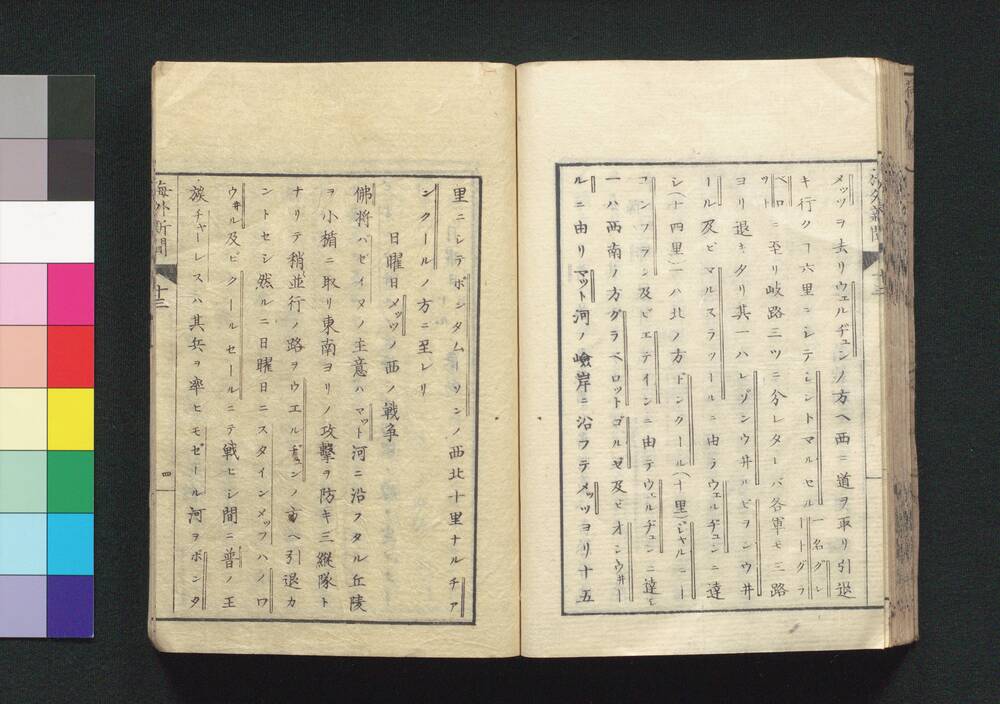 メッツヲ去リウエルヂユンノ方ヘ西ニ道ヲ取リ引退
キ行クコ六里ニシテシントマルセル一名グレートグラ
ベロットニ至リ岐路三ツニ分レタレバ各軍モ三路
ヨリ退キタリ其一ハレゾンウ井ルビヲンウ井
ール及ビマルスラツールニ由ラウエルヂユンニ達
シ(十四里)一ハ北ノ方ドンクール(十里)ジャルニー
コンフラン及ビエテインニ由テウエルヂユンニ達シ
一ハ西南ノ方グラベロットゴルゼ及ビオンウ井ー
ルニ由リマット河ノ嶮岸ニ沿フテメッツヨリ十五
海外新聞
里ニシテポンタムーソンノ西北十里ナルチア
ンクールノ方ニ至レリ
日曜日メッツノ西ノ戦争
佛将バゼイヌノ主意ハマット河ニ沿フタル丘陵
ヲ小楯ニ取リ東南ヨリノ攻撃ヲ防キ三縦隊ト
ナリテ稍並行ノ路ヲウエルヂユンノ方ヘ引退カ
ントセシ然ルニ日曜日ニスタインメッツハノワ
ウ井ル及ビクールセールニテ戦ヒシ間ニ普ノ王
族チャーレスハ其兵ヲ率ヒモゼール河ヲポンタ
海外新聞 十三
四